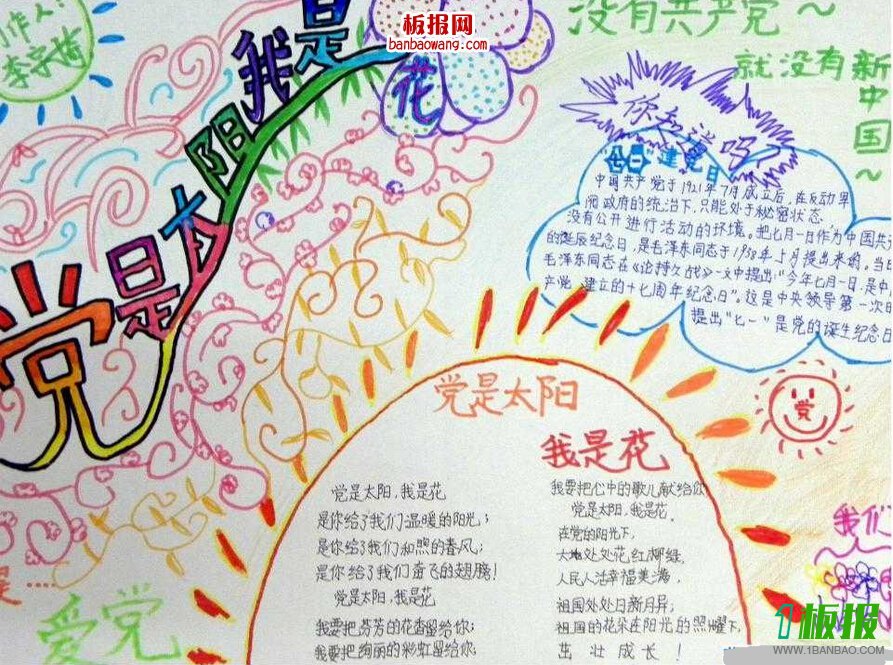 制作人：
李宗楠
板报网
banbaowang.com
党是太阳我是
花
没有共产党～
就没有新中国～
你知道吗？
"七一"建党日
中国共产党于1921年7月成立后，在反动军
阀政府的统治下，只能处于秘密状态
没有公开进行活动的环境。把七月一日作为中国共
的诞辰纪念日，是毛泽东同志于1938年5月提出来的。当
毛泽东同志在《论持久战》一文中提出"今年七月一日，是中
产党 建立的十七周年纪念日"。这是中央领导第一次
提出"七一"是党的诞生纪念日
党
党是太阳
我是花
党是太阳，我是花
是你给了我们温暖的阳光；
是你给了我们和煦的春风；
是你给了我们奋飞的翅膀！
党是太阳，我是花
我要把芬芳的花香留给你；
我要把绚丽的彩虹留给你
我要把心中的歌儿献给你
党是太阳，我是花。
在党的阳光下，
大地处处花红柳绿，
人民人活幸福美满，
祖国处处日新月异；
祖国的花朵在阳光的照耀下，
茁壮成长！
我们
爱党
1板报
WWW.1BANBAO.COM